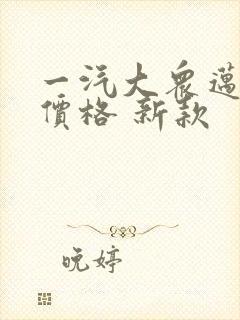 一汽大眾邁
價格 新款
晚婷